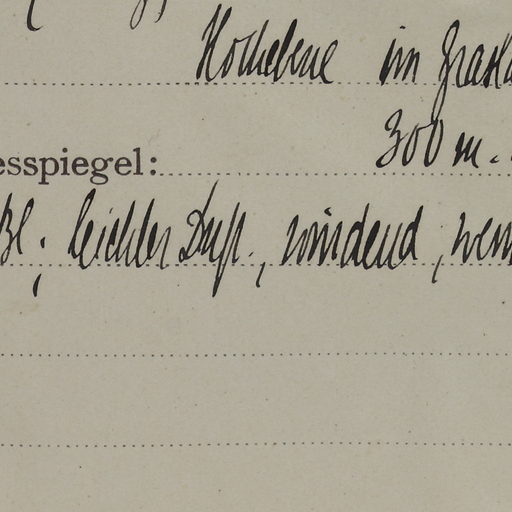 Hochebene im Grasla
esspiegel: 300 m.
Bl; leichter Duft, windend, wen